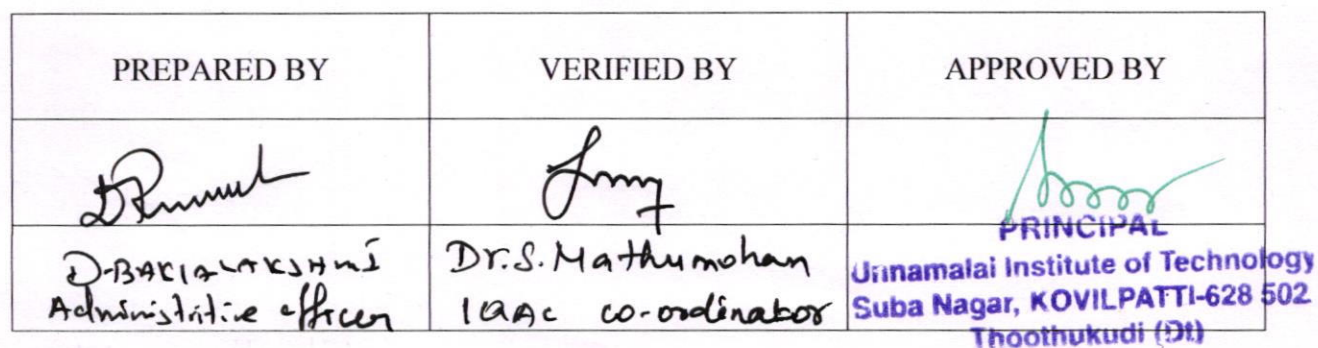 PREPARED BY
VERIFIED BY
APPROVED BY
D. BAKIALAKSHMI
Administrative officer
Dr. S. Mathumohan
IQAC co-ordinator
PRINCIPAL
Unnamalai Institute of Technology
Suba Nagar, KOVILPATTI-628 502
Thoothukudi (Dt)